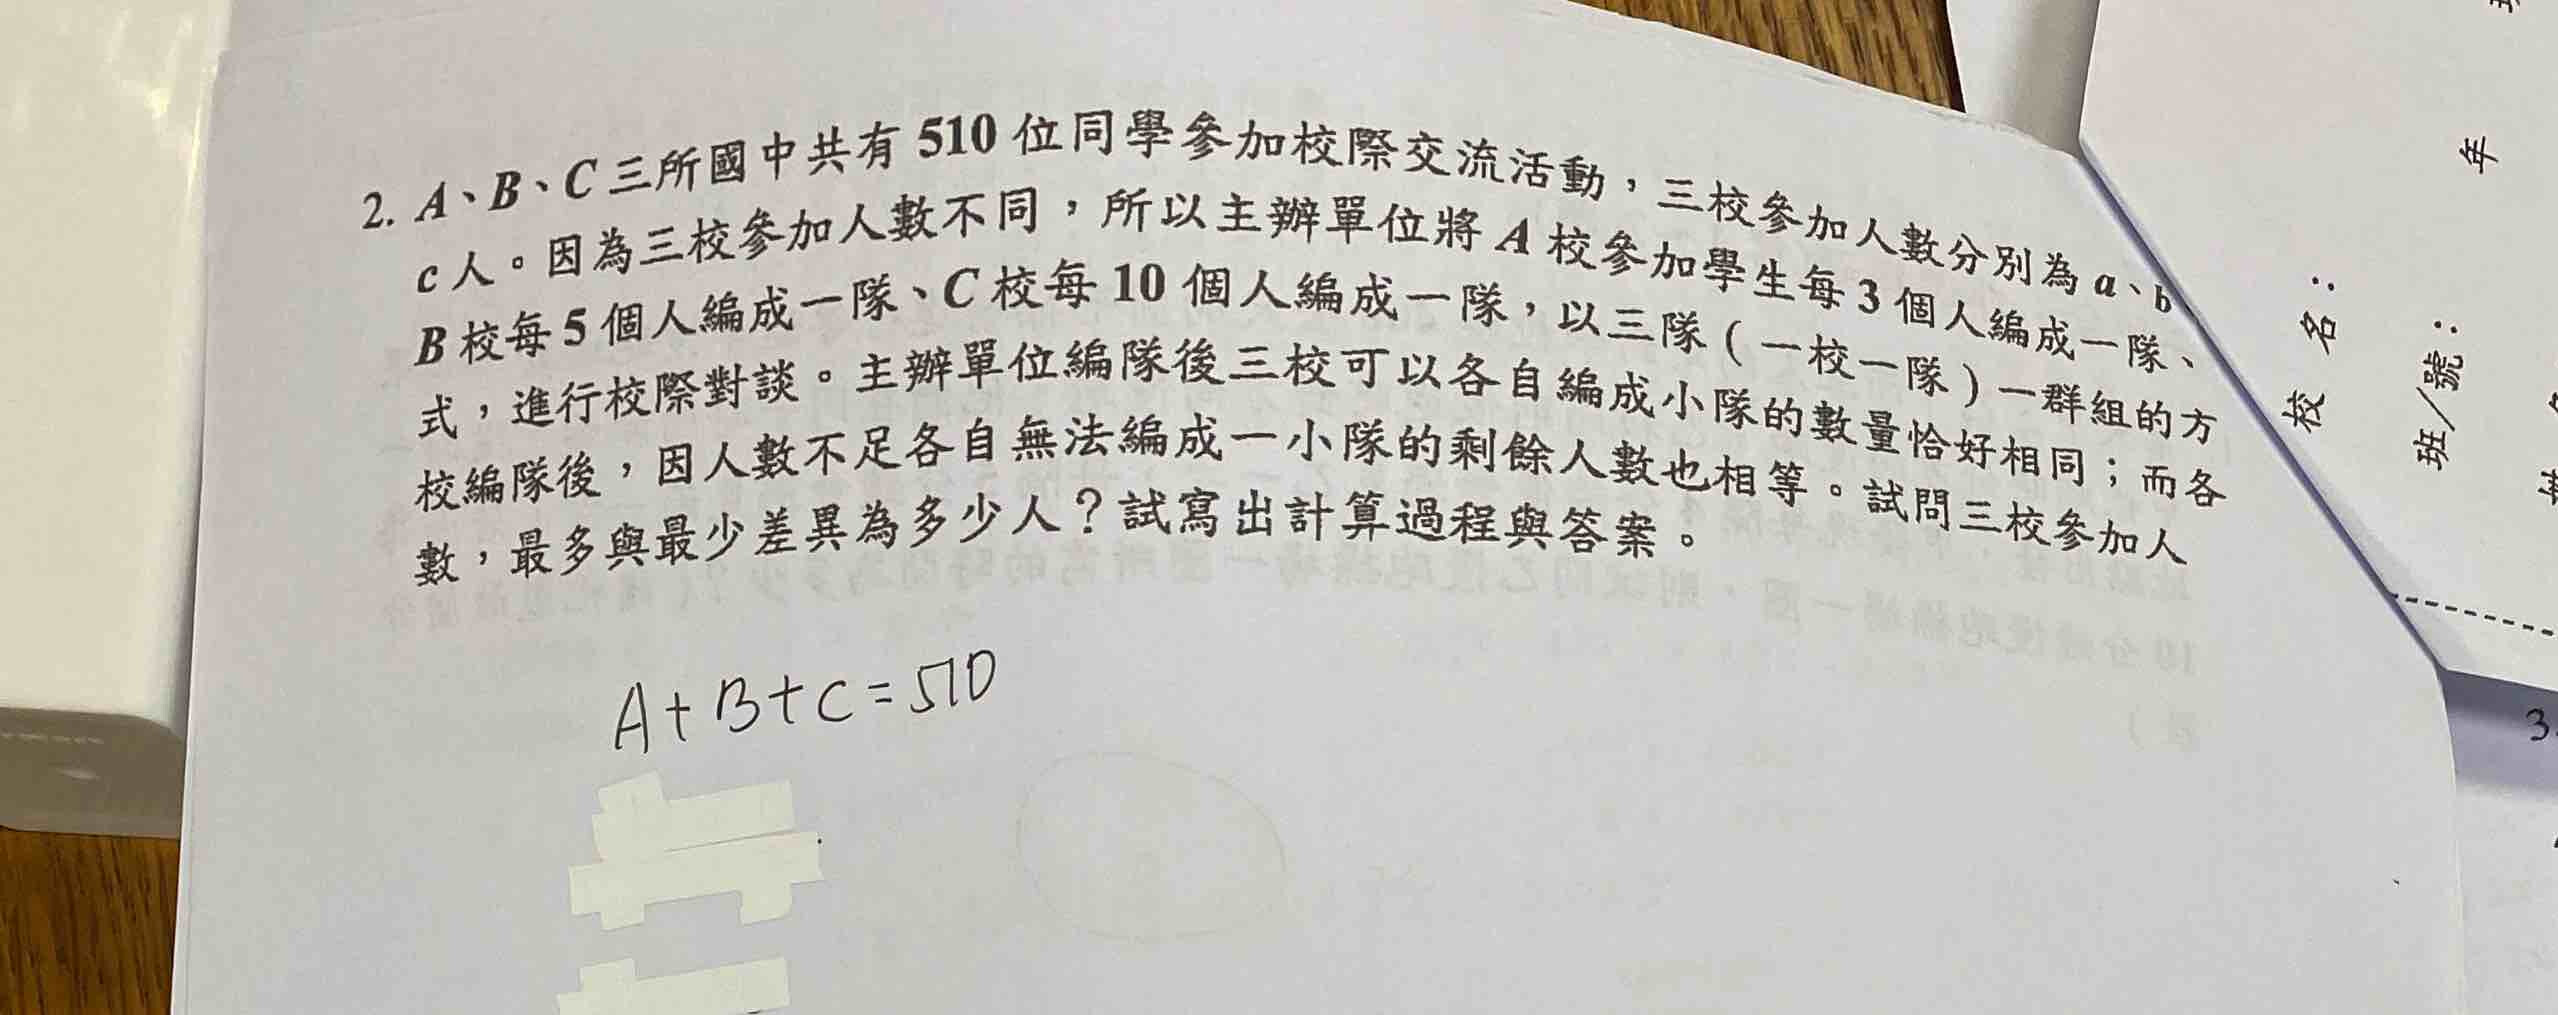 2. A、B、C 三所國中共有 510 位同學參加校際交流活動，三校參加人數分別為 a、b
c 人。因為三校參加人數不同，所以主辦單位將 A 校參加學生每 3 個人編成一隊、
B 校每 5 個人編成一隊、C 校每 10 個人編成一隊，以三隊（一校一隊）一群組的方
式，進行校際對談。主辦單位編隊後三校可以各自編成小隊的數量恰好相同；而各
校編隊後，因人數不足各自無法編成一小隊的剩餘人數也相等。試問三校參加人
數，最多與最少差異為多少人？試寫出計算過程與答案。
A+B+C=510
校名：
班/號：
年
3.